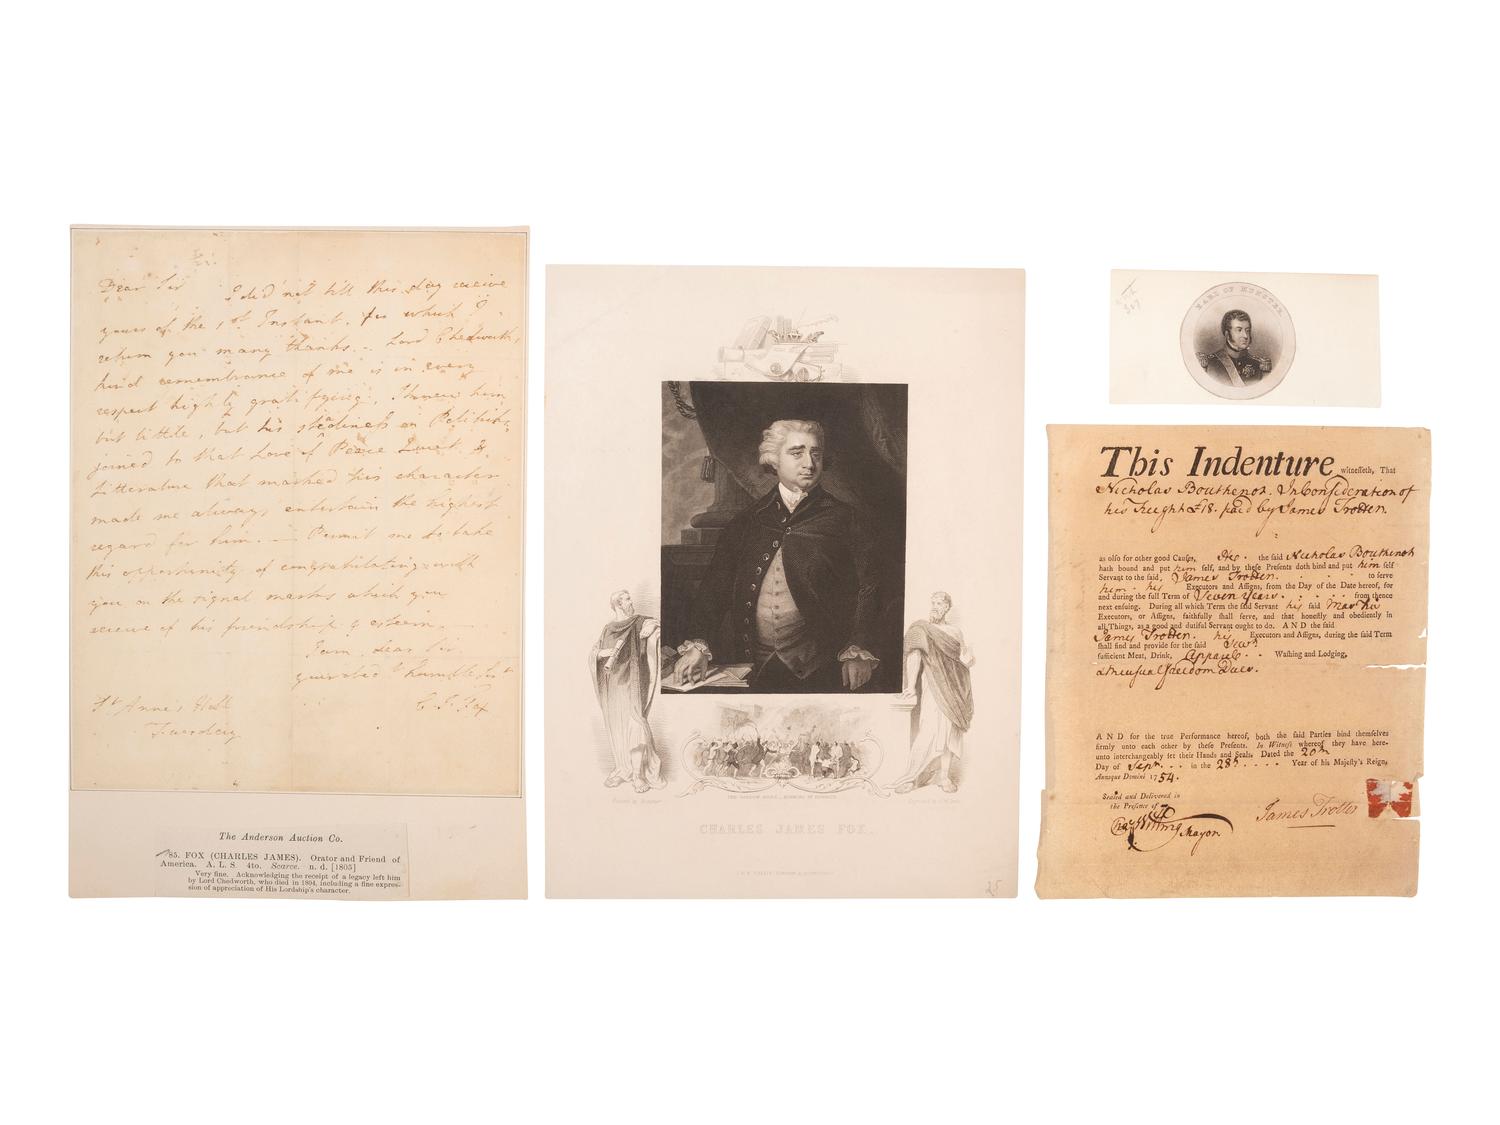 Dear Sir I did not till this day receive
yours of the 1st Instant, for which I
return you many thanks. – Lord Chedworth's
kind remembrance of me is in every
respect highly gratifying, I knew him
but little, but his steadiness in Politicks,
joined to that Love of Peace &
Litterature that marked his character
made me always entertain the highest
regard for him. – Permit me to take
this opportunity of congratulating with
you on the signal marks which you
receive of his friendship & esteem.
I am, dear Sir,
humble
St Anne's Hill C. J. Fox
Tuesday
The Anderson Auction Co.
85. FOX (CHARLES JAMES). Orator and Friend of
America. A. L. S. 4to. Scarce. n. d. [1805]
Very fine. Acknowledging the receipt of a legacy left him
by Lord Chedworth, who died in 1804, including a fine expres-
sion of appreciation of His Lordship's character.
CHARLES JAMES FOX.
25
EARL OF MUNSTER
This Indenture witnesseth, That
Nicholas Bouthenot. In Consideration of
his Freight £18. paid by James Trotter.
as also for other good Causes, He the said Nicholas Bouthenot
hath bound and put him self, and by these Presents doth bind and put him self
Servant to the said James Trotter. to serve
him his Executors and Assigns, from the Day of the Date hereof, for
and during the full Term of Seven Years from thence
next ensuing. During all which Term the said Servant his said Master
Executors, or Assigns, faithfully shall serve, and that honestly and obediently in
all Things, as a good and dutiful Servant ought to do. AND the said
James Trotter. his Executors and Assigns, during the said Term
shall find and provide for the said Servt
sufficient Meat, Drink, Apparel Washing and Lodging,
& the usual freedom Dues.
AND for the true Performance hereof, both the said Parties bind themselves
firmly unto each other by these Presents. In Witness whereof they have here-
unto interchangeably set their Hands and Seals. Dated the 20th
Day of Sepr. in the 28th Year of his Majesty's Reign,
Annoque Domini 1754.
Sealed and Delivered in
the Presence of
Chas Willing Mayor
James Trotter